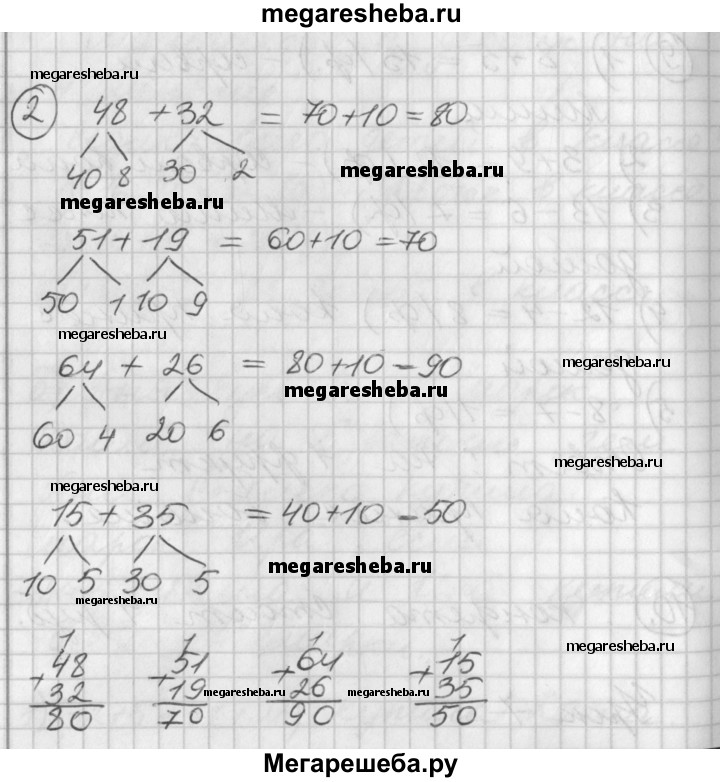 megaresheba.ru
megaresheba.ru
2 48 + 32 = 70+10=80
40 8 30 2
megaresheba.ru
megaresheba.ru
51+ 19 = 60+10=70
50 1 10 9
megaresheba.ru
64 + 26 = 80+10-90
megaresheba.ru
megaresheba.ru
60 4 20 6
megaresheba.ru
megaresheba.ru
15 + 35 = 40+10-50
megaresheba.ru
10 5 30 5
megaresheba.ru
1 1 1 1
megaresheba.ru
+48 +51 +64 +15
32 19 26 35
megaresheba.ru megaresheba.ru
80 70 90 50
Мегарешеба.ру